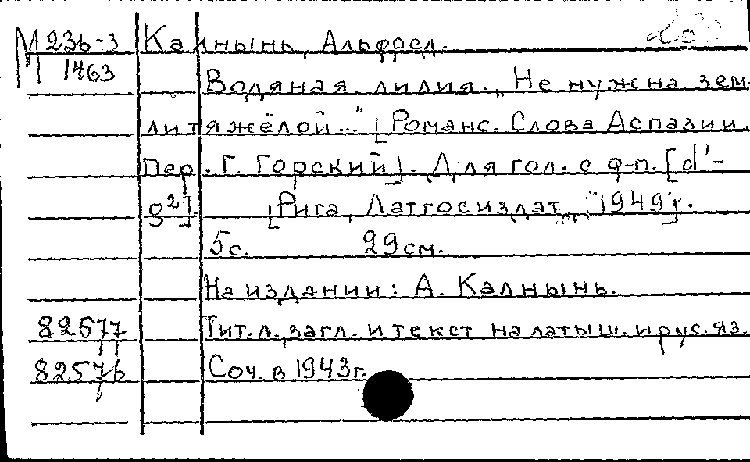 М 236-3 Калнынь, Альфред.
1463
Водяная лилия. „Не нужна зем-
ли тяжёлой..." [Романс. Слова Аспазии.
Пер. Г. Горский]. Для гол. с ф-п. [d'-
g²]. [Рига, Латгосиздат, "1949"].
5с. 29см.
На издании: А. Калнынь.
82577 Тит. л., загл. и текст на латыш. и рус. яз.
82576 Соч. в 1943г.